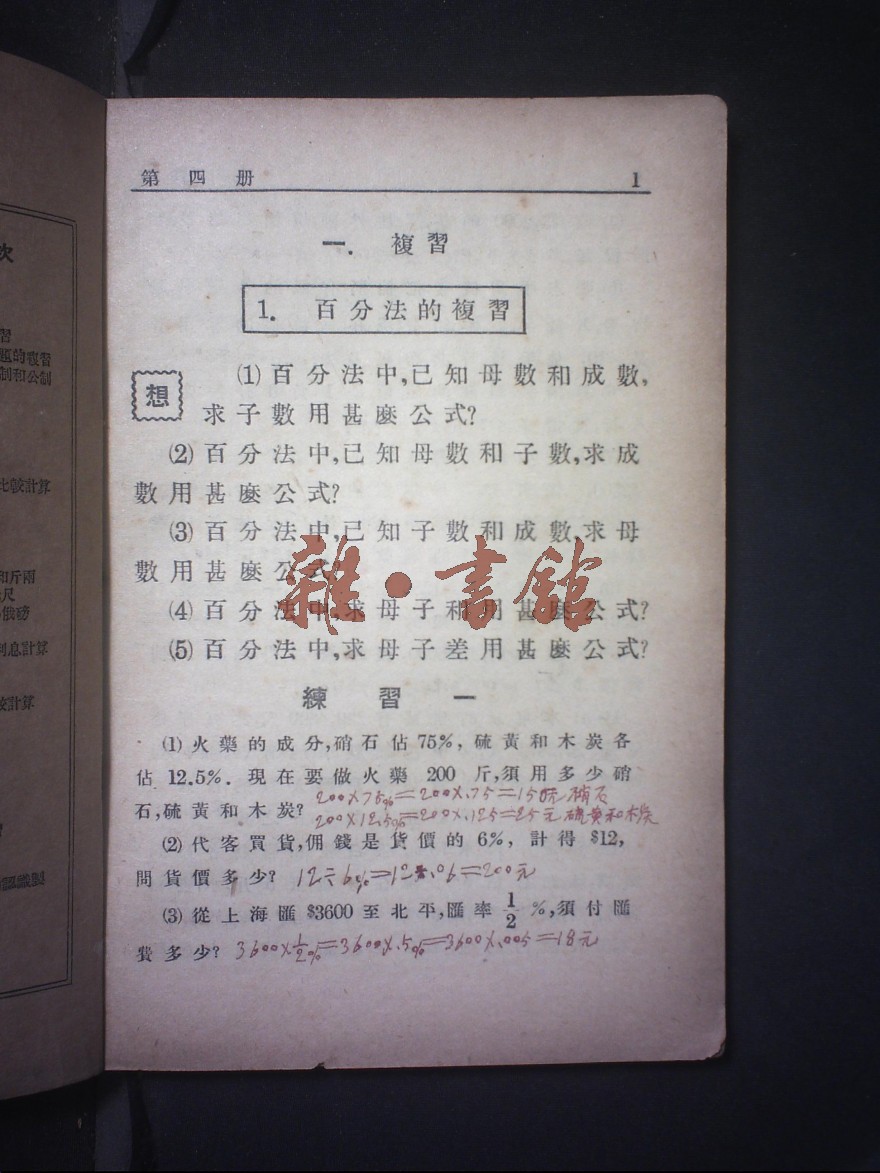 第四册 1
一. 複習
1. 百分法的複習
想
(1)百分法中,已知母數和成數,
求子數用甚麼公式?
(2)百分法中,已知母數和子數,求成
數用甚麼公式?
(3)百分法中,已知子數和成數,求母
數用甚麼公式
(4)百分法中,求母子和用甚麼公式?
(5)百分法中,求母子差用甚麼公式?
雜·書館
練習一
(1)火藥的成分,硝石佔75%,硫黃和木炭各
佔12.5%.現在要做火藥200斤,須用多少硝
石,硫黃和木炭?
200×75%=200×.75=150 硝石
200×12.5%=200×.125=25元硫黄和木炭
(2)代客買貨,佣錢是貨價的6%,計得$12,
問貨價多少? 12÷6%=12÷.06=200元
(3)從上海匯$3600至北平,匯率1/2%,須付匯
費多少? 3600×1/2%=3600×.5%=3600×.005=18元
次
習
題的複習
制和公制
比較計算
和斤兩
尺
俄磅
利息計算
較計算
習
認識製